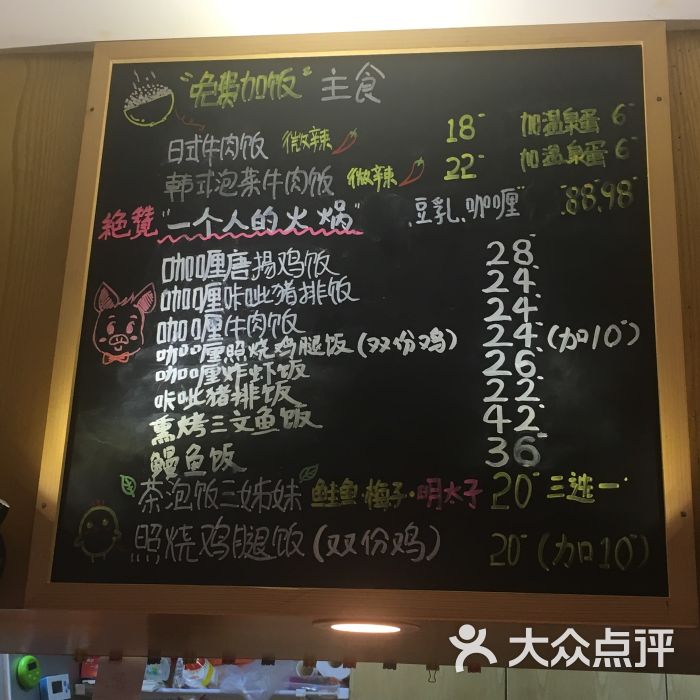 "免费加饭" 主食
日式牛肉饭 微辣 18- 加温泉蛋 6-
韩式泡菜牛肉饭 微辣 22- 加温泉蛋 6-
絶赞"一个人的火焗" .豆乳.咖喱" 88.98-
咖喱唐揚鸡饭 28-
咖喱咔呲猪排饭 24-
咖喱牛肉饭 24-
咖喱照烧鸡腿饭(双份鸡) 24-(加10-)
咖喱炸虾饭 26-
咔呲猪排饭 22-
熏烤三文鱼饭 42-
鳗鱼饭 36-
茶泡饭三姊妹 鲑鱼·梅子·明太子 20- 三选一
照烧鸡腿饭(双份鸡) 20-(加10-)
大众点评